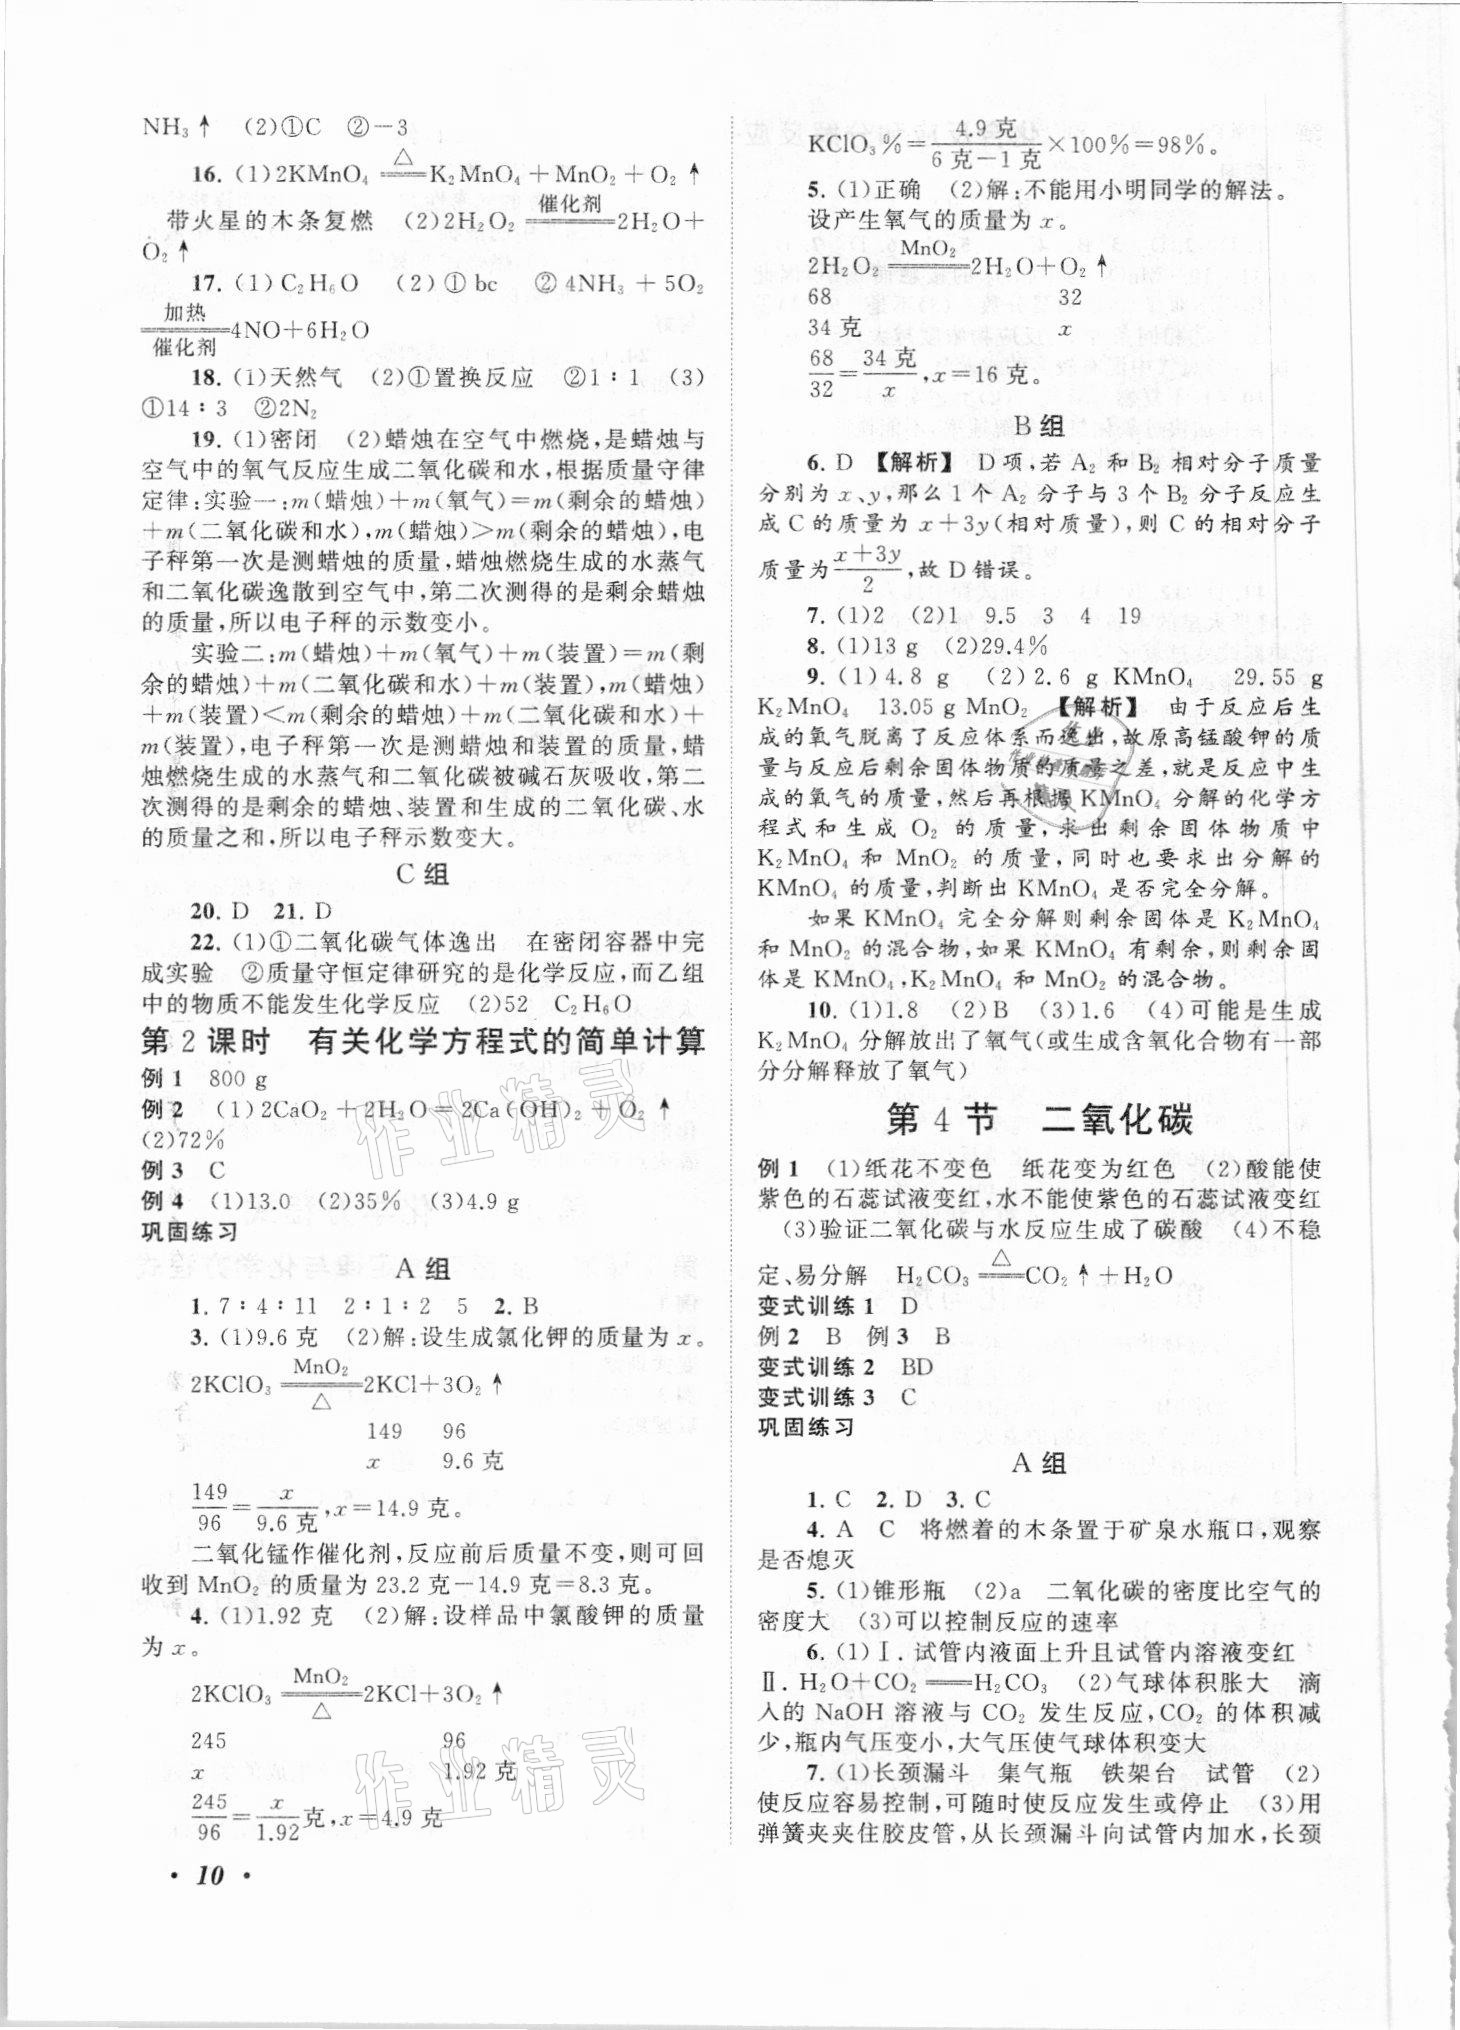 NH₃↑　(2)①C　②－3
16. (1)2KMnO₄ ══△══ K₂MnO₄＋MnO₂＋O₂↑
带火星的木条复燃　(2)2H₂O₂ ══催化剂══ 2H₂O＋
O₂↑
17. (1)C₂H₆O　(2)①bc　②4NH₃＋5O₂
══加热/催化剂══ 4NO＋6H₂O
18. (1)天然气　(2)①置换反应　②1∶1　(3)
①14∶3　②2N₂
19. (1)密闭　(2)蜡烛在空气中燃烧,是蜡烛与
空气中的氧气反应生成二氧化碳和水,根据质量守律
定律:实验一:m(蜡烛)＋m(氧气)＝m(剩余的蜡烛)
＋m(二氧化碳和水),m(蜡烛)＞m(剩余的蜡烛),电
子秤第一次是测蜡烛的质量,蜡烛燃烧生成的水蒸气
和二氧化碳逸散到空气中,第二次测得的是剩余蜡烛
的质量,所以电子秤的示数变小。
实验二:m(蜡烛)＋m(氧气)＋m(装置)＝m(剩
余的蜡烛)＋m(二氧化碳和水)＋m(装置),m(蜡烛)
＋m(装置)＜m(剩余的蜡烛)＋m(二氧化碳和水)＋
m(装置),电子秤第一次是测蜡烛和装置的质量,蜡
烛燃烧生成的水蒸气和二氧化碳被碱石灰吸收,第二
次测得的是剩余的蜡烛、装置和生成的二氧化碳、水
的质量之和,所以电子秤示数变大。
C组
20. D　21. D
22. (1)①二氧化碳气体逸出　在密闭容器中完
成实验　②质量守恒定律研究的是化学反应,而乙组
中的物质不能发生化学反应　(2)52　C₂H₆O
第2课时　有关化学方程式的简单计算
例1　800 g
例2　(1)2CaO₂＋2H₂O＝2Ca(OH)₂＋O₂↑
(2)72％
例3　C
例4　(1)13.0　(2)35％　(3)4.9 g
巩固练习
A组
1. 7∶4∶11　2∶1∶2　5　2. B
3. (1)9.6克　(2)解:设生成氯化钾的质量为x。
2KClO₃ ══MnO₂/△══ 2KCl＋3O₂↑
149　96
x　9.6克
149/96＝x/9.6克,x＝14.9克。
二氧化锰作催化剂,反应前后质量不变,则可回
收到MnO₂的质量为23.2克－14.9克＝8.3克。
4. (1)1.92克　(2)解:设样品中氯酸钾的质量
为x。
2KClO₃ ══MnO₂/△══ 2KCl＋3O₂↑
245　96
x　1.92克
245/96＝x/1.92克,x＝4.9克
· 10 ·
KClO₃％＝4.9克/6克－1克×100％＝98％。
5. (1)正确　(2)解:不能用小明同学的解法。
设产生氧气的质量为x。
2H₂O₂ ══MnO₂══ 2H₂O＋O₂↑
68　32
34克　x
68/32＝34克/x,x＝16克。
B组
6. D　【解析】　D项,若A₂和B₂相对分子质量
分别为x、y,那么1个A₂分子与3个B₂分子反应生
成C的质量为x＋3y(相对质量),则C的相对分子
质量为x＋3y/2,故D错误。
7. (1)2　(2)1　9.5　3　4　19
8. (1)13 g　(2)29.4％
9. (1)4.8 g　(2)2.6 g KMnO₄　29.55 g
K₂MnO₄　13.05 g MnO₂　【解析】　由于反应后生
成的氧气脱离了反应体系而逸出,故原高锰酸钾的质
量与反应后剩余固体物质的质量之差,就是反应中生
成的氧气的质量,然后再根据KMnO₄分解的化学方
程式和生成O₂的质量,求出剩余固体物质中
K₂MnO₄和MnO₂的质量,同时也要求出分解的
KMnO₄的质量,判断出KMnO₄是否完全分解。
如果KMnO₄完全分解则剩余固体是K₂MnO₄
和MnO₂的混合物,如果KMnO₄有剩余,则剩余固
体是KMnO₄,K₂MnO₄和MnO₂的混合物。
10. (1)1.8　(2)B　(3)1.6　(4)可能是生成
K₂MnO₄分解放出了氧气(或生成含氧化合物有一部
分分解释放了氧气)
第4节　二氧化碳
例1　(1)纸花不变色　纸花变为红色　(2)酸能使
紫色的石蕊试液变红,水不能使紫色的石蕊试液变红
(3)验证二氧化碳与水反应生成了碳酸　(4)不稳
定、易分解　H₂CO₃ ══△══ CO₂↑＋H₂O
变式训练1　D
例2　B　例3　B
变式训练2　BD
变式训练3　C
巩固练习
A组
1. C　2. D　3. C
4. A　C　将燃着的木条置于矿泉水瓶口,观察
是否熄灭
5. (1)锥形瓶　(2)a　二氧化碳的密度比空气的
密度大　(3)可以控制反应的速率
6. (1)Ⅰ. 试管内液面上升且试管内溶液变红
Ⅱ. H₂O＋CO₂══H₂CO₃　(2)气球体积胀大　滴
入的NaOH溶液与CO₂发生反应,CO₂的体积减
少,瓶内气压变小,大气压使气球体积变大
7. (1)长颈漏斗　集气瓶　铁架台　试管　(2)
使反应容易控制,可随时使反应发生或停止　(3)用
弹簧夹夹住胶皮管,从长颈漏斗向试管内加水,长颈
作业精灵
作业精灵